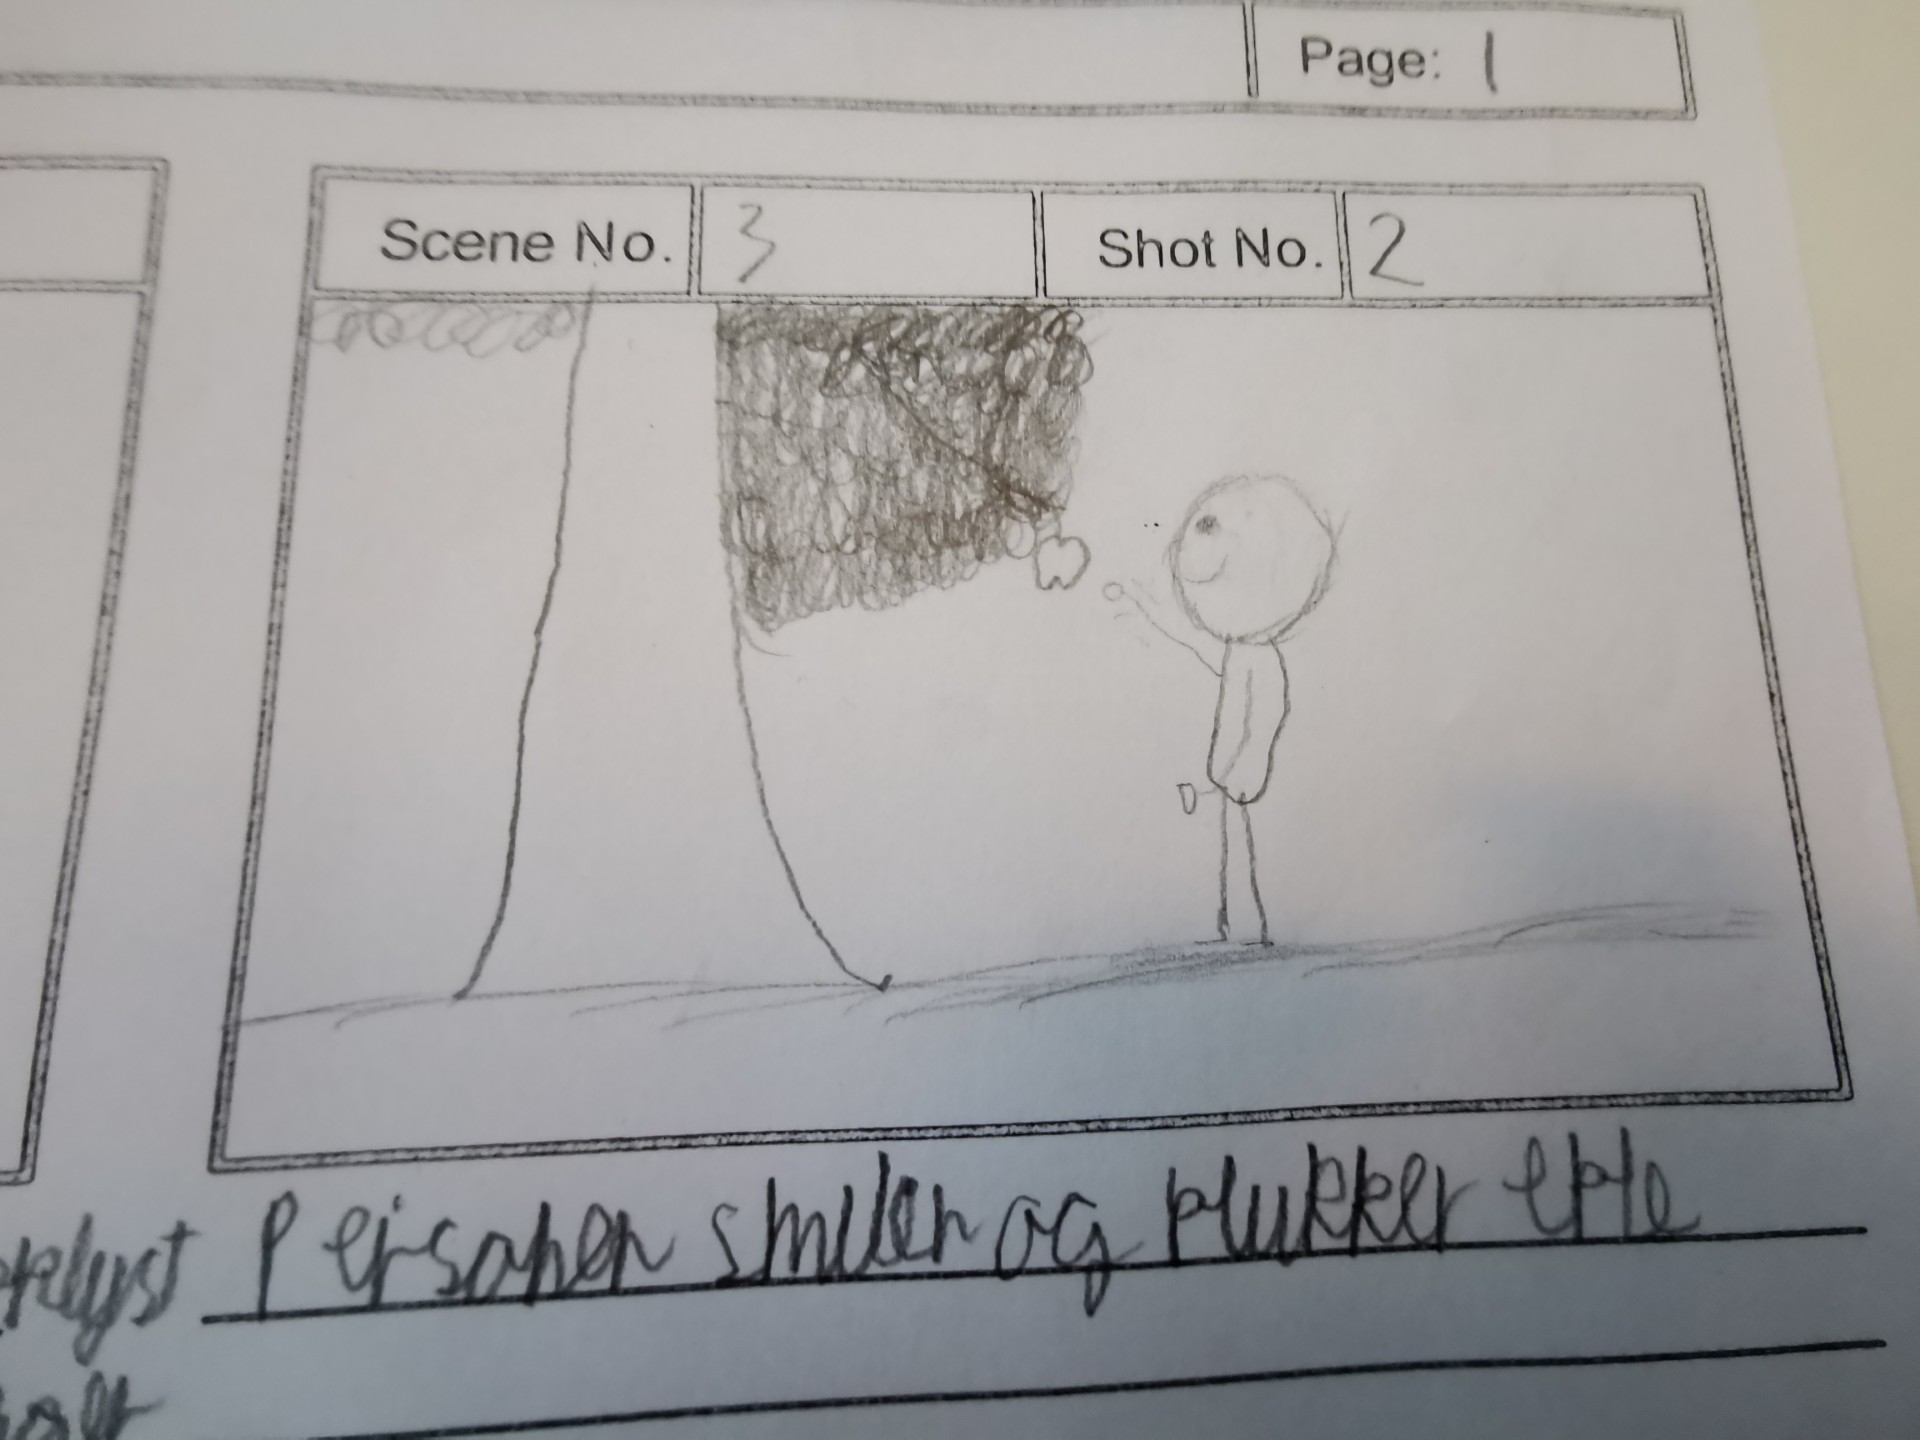 Page: 1
Scene No. 3 Shot No. 2
Personen smiler og plukker eple